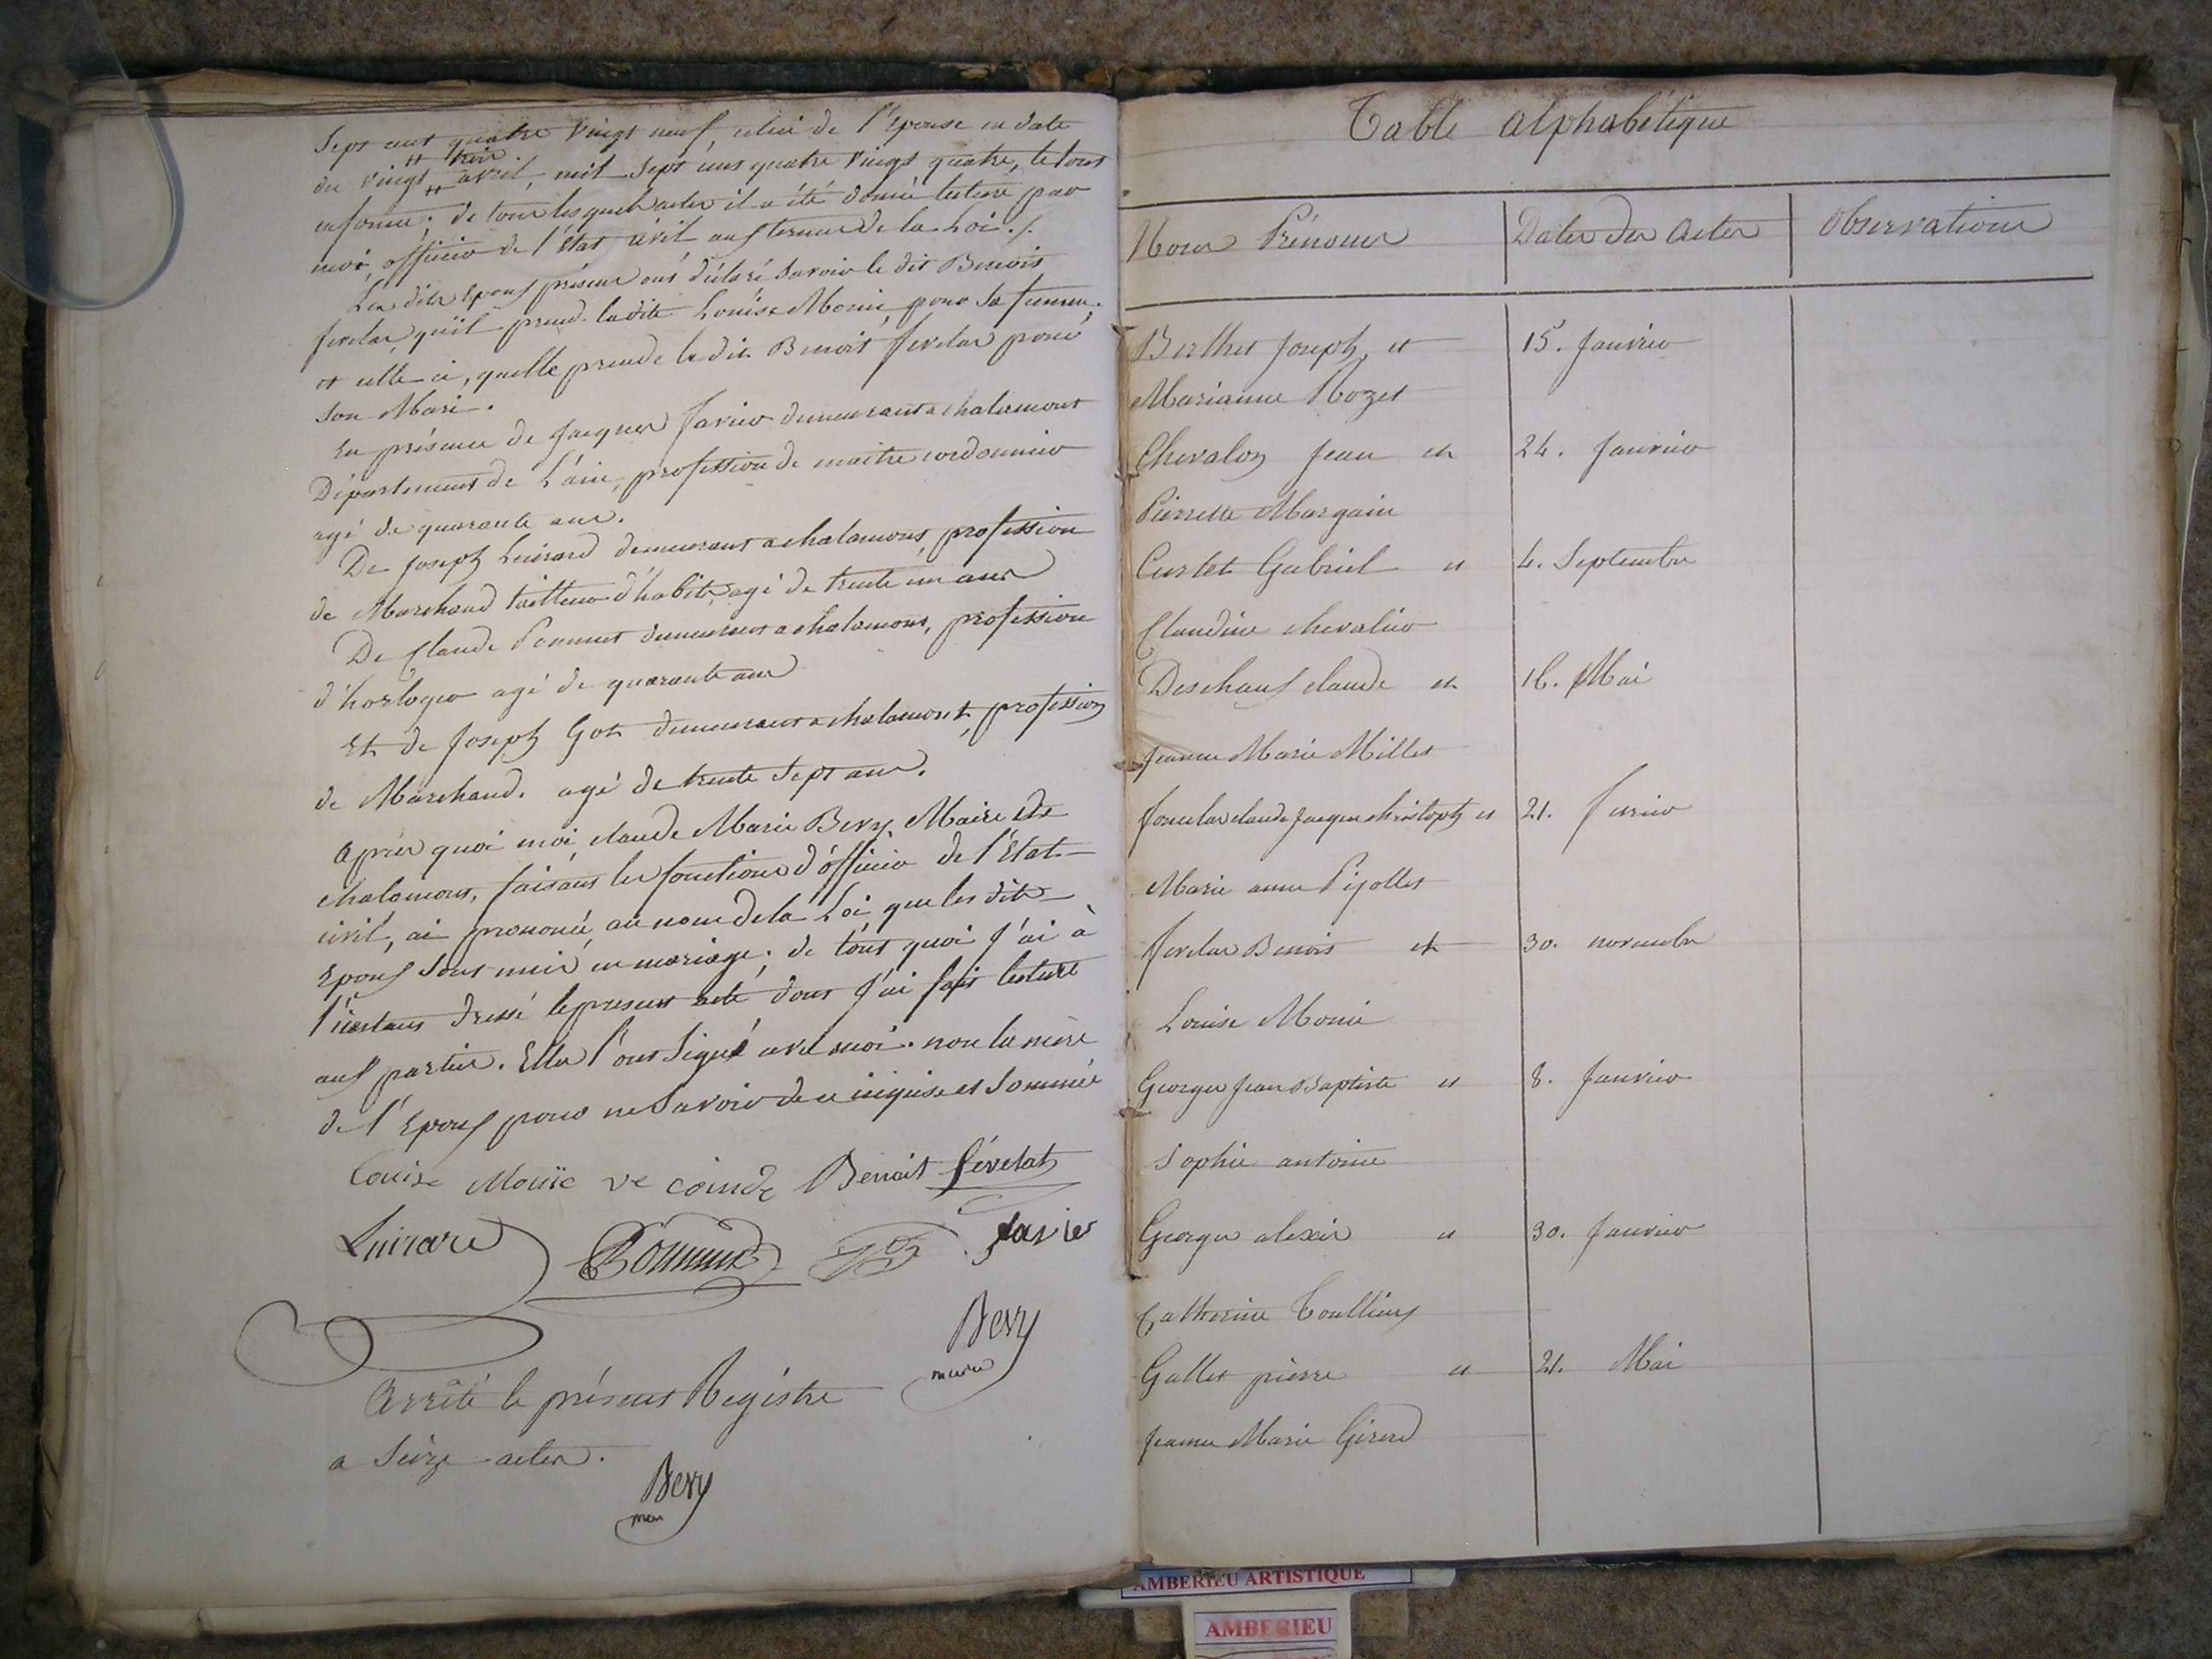 Sept cent quatre vingt neuf, celui de l'Epouse en date
du vingt trois avril, mil sept cens quatre vingt quatre, le tous
en forme; de tous lesquels actes il a été donné lecture par
moi, officier de l'Etat civil aux termes de la Loi./.
Les dits Epoux présens ont déclaré savoir le dit Benoit
fevelas, qu'il prend ladite Louise Monie pour sa femme;
et celle-ci, quelle prende le dit Benoit fevelas pour
son Mari.
En présence de Jacques Javier demeurant a chalamont
Département de L'ain, profession de maitre cordonnier
agé de quarante ans.
De Joseph Luirard demeurant a chalamont, profession
de Marchand tailleur d'habits, agé de trente un ans
De Claude Pommet demeurant a chalamont, profession
d'horloger agé de quarante ans
Et de Joseph Got demeurant a chalamont, profession
de Marchand. agé de trente sept ans.
Après quoi moi, claude Marie Bevy, Maire de
chalamont, faisant les fonctions d'officier de l'Etat
civil, ai prononcé, au nom de la Loi, que les dits
Epoux sont unis en mariage; de tout quoi j'ai à
l'instant dressé le present acte dont j'ai fait lecture
aux parties. Elles l'ont signé avec moi. non la mère
de l'Epoux pour ne savoir de ce enquise et sommée
Louise Monie ve coinde Benoit févelat
Luirard Pommet Javier
Bevy
maire
Arrêté le présent Régistre
a seize actes.
Bevy
Table alphabétique
Noms Prénoms Dates des Actes Observations
Berthet Joseph, et 15. Janvier
Marianne Rozet
Chevalon Jean et 24. Janvier
Pierrette Margain
Curtet Gabriel et 4. Septembre
Claudine chevalier
Deschaux claude et 16. Mai
Jeanne Marie Millet
claude Jacques christoph et 21. fevrier
Marie anne Pijollet
fevelas Benoit et 30. novembre
Louise Monie
Georges Jean Baptiste et 8. Janvier
Sophie antoine
Georges alexis et 30. Janvier
Catherine
Gallet pierre et 21. Mai
Jeanne Marie Girerd
AMBERIEU ARTISTIQUE
AMBERIEU